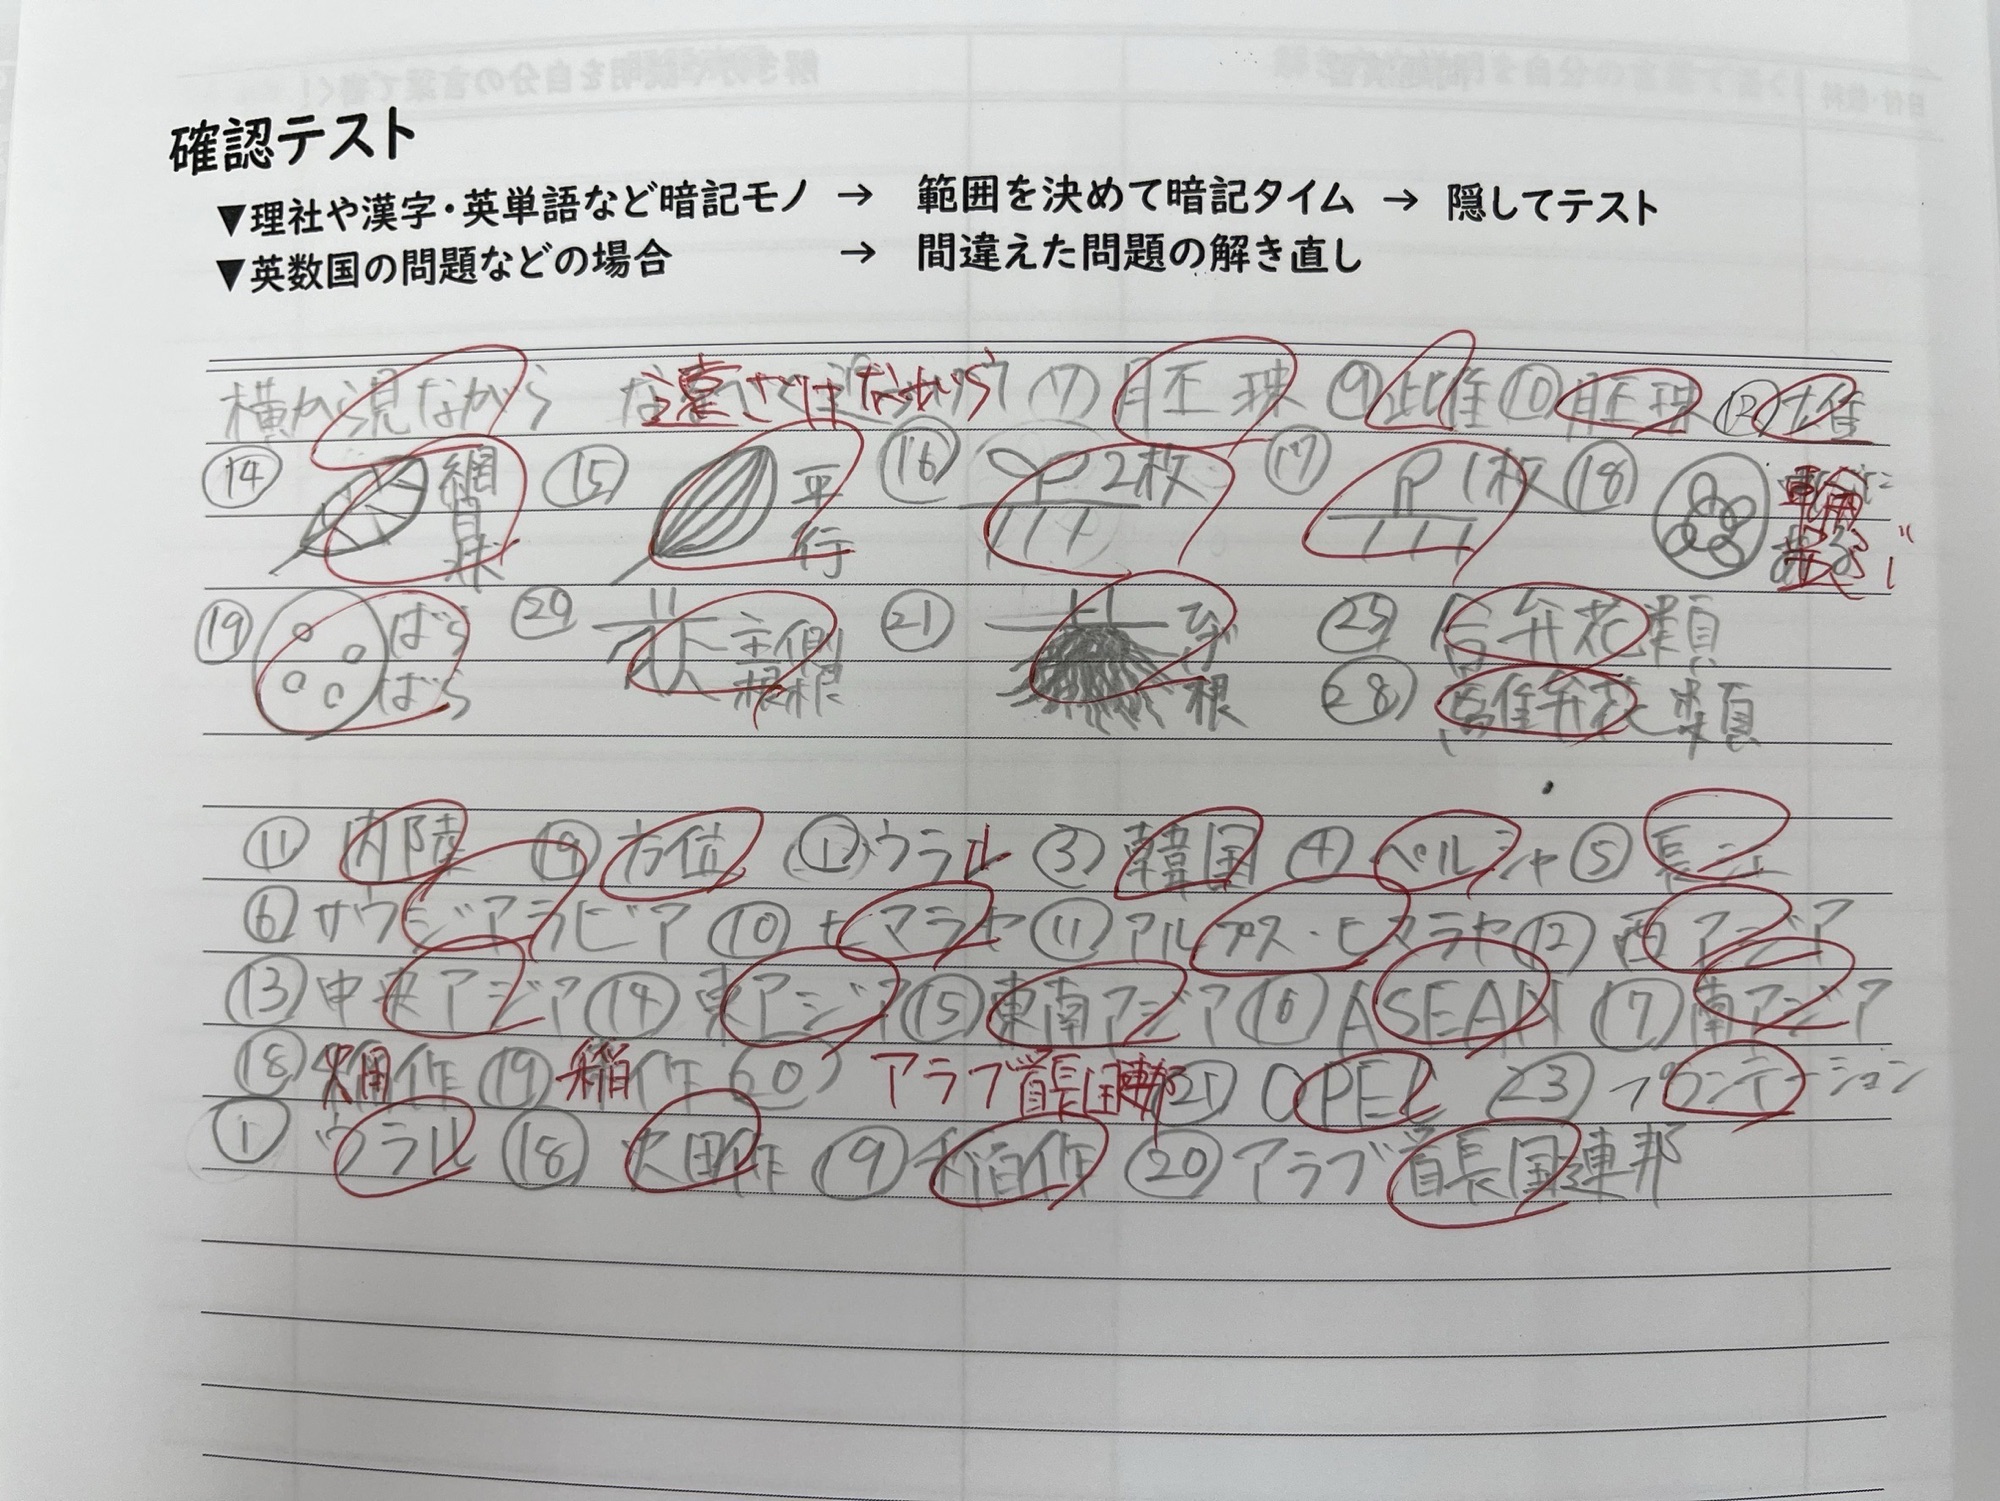 確認テスト
▼理社や漢字・英単語など暗記モノ → 範囲を決めて暗記タイム → 隠してテスト
▼英数国の問題などの場合 → 間違えた問題の解き直し
横から見ながら ⑦ 胚珠 ⑨ 雌 ⑩ 胚珠 ⑫ 雄
⑭ 網目状 ⑮ 平行 ⑯ 2枚 ⑰ 1枚 ⑱
⑲ ばらばら ⑳ 主根 側根 ㉑ ひげ根 ㉕ 合弁花類
㉘ 離弁花類
⑪ 内陸 ⑲ 方位 ① ウラル ③ 韓国 ④ ペルシャ ⑤ 長江
⑥ サウジアラビア ⑩ ヒマラヤ ⑪ アルプス・ヒマラヤ ⑫ 西アジア
⑬ 中央アジア ⑭ 東アジア ⑮ 東南アジア ⑯ ASEAN ⑰ 南アジア
⑱ 畑作 ⑲ 稲作 ⑳ アラブ首長国連邦 ㉑ OPEC ㉓ プランテーション
① ウラル ⑱ 畑作 ⑲ 稲作 ⑳ アラブ首長国連邦